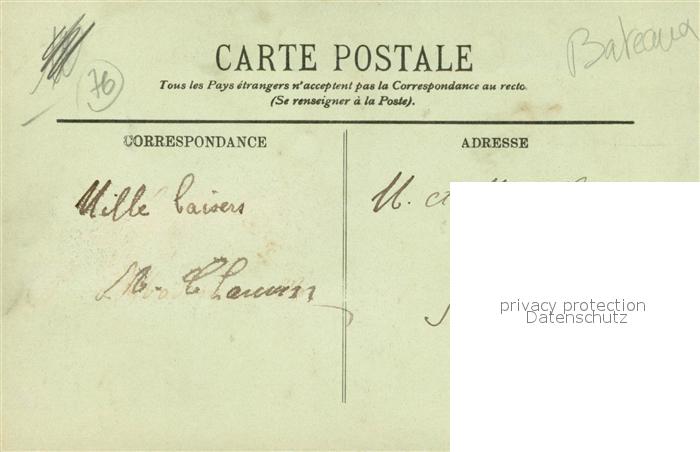 76
Bateaux
CARTE POSTALE
Tous les Pays étrangers n'acceptent pas la Correspondance au recto.
(Se renseigner à la Poste).
CORRESPONDANCE
ADRESSE
Mille baisers
M. et
privacy protection
Datenschutz